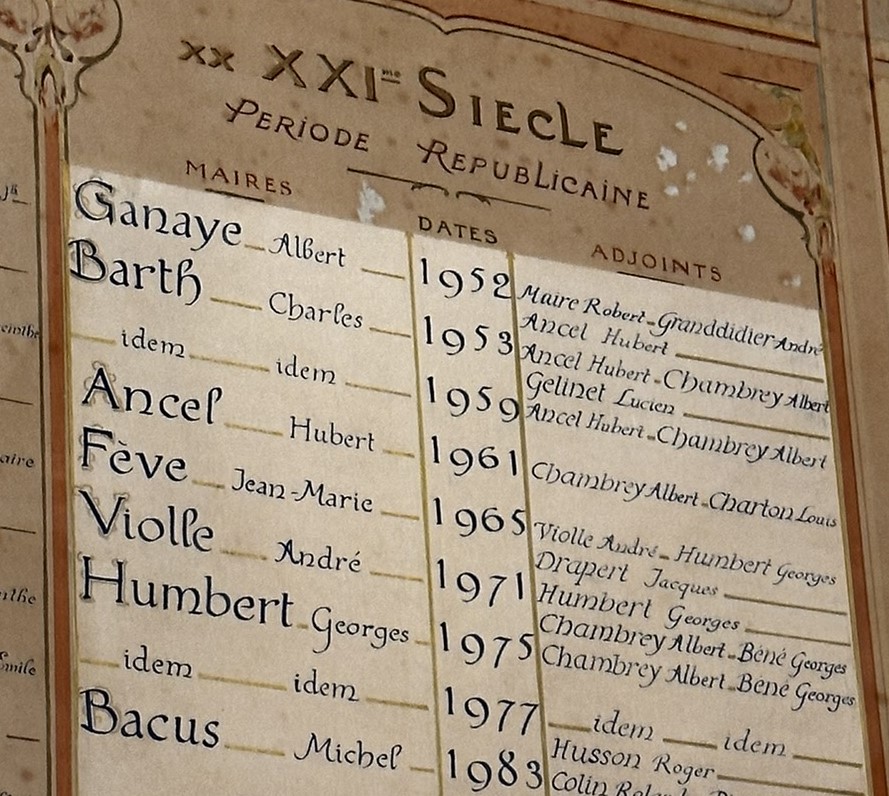 XX XXIme SIECLE
PERIODE REPUBLICAINE
MAIRES DATES ADJOINTS
Ganaye Albert 1952 Maire Robert - Granddidier André
Ancel Hubert
Barth Charles 1953 Ancel Hubert - Chambrey Albert
Gelinet Lucien
idem idem 1959 Ancel Hubert - Chambrey Albert
Ancel Hubert 1961 Chambrey Albert - Charton Louis
Fève Jean-Marie 1965 Violle André - Humbert Georges
Drapert Jacques
Violle André 1971 Humbert Georges
Chambrey Albert - Béné Georges
Humbert Georges 1975 Chambrey Albert - Béné Georges
idem idem 1977 idem idem
Husson Roger
Bacus Michel 1983 Colin